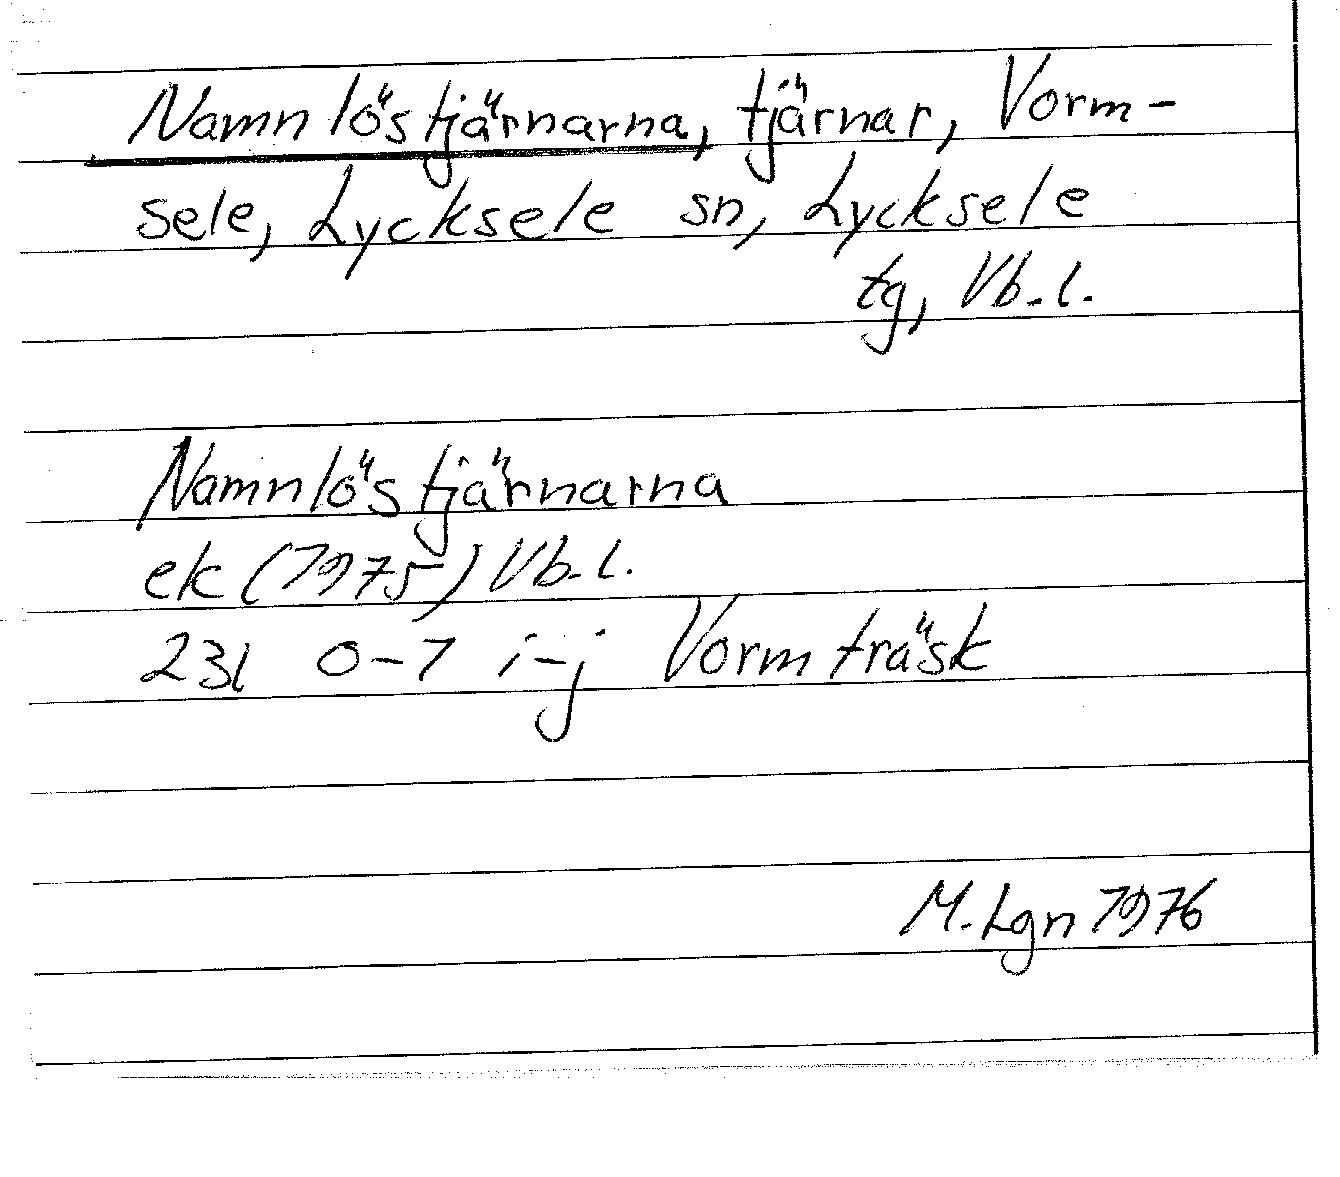 Namnlöstjärnarna, tjärnar, Vorm-
sele, Lycksele sn, Lycksele
tg, Vb.l.
Namnlöstjärnarna
ek (1975) Vb.l.
23l 0-1 i-j Vormträsk
M.Lgn 1976